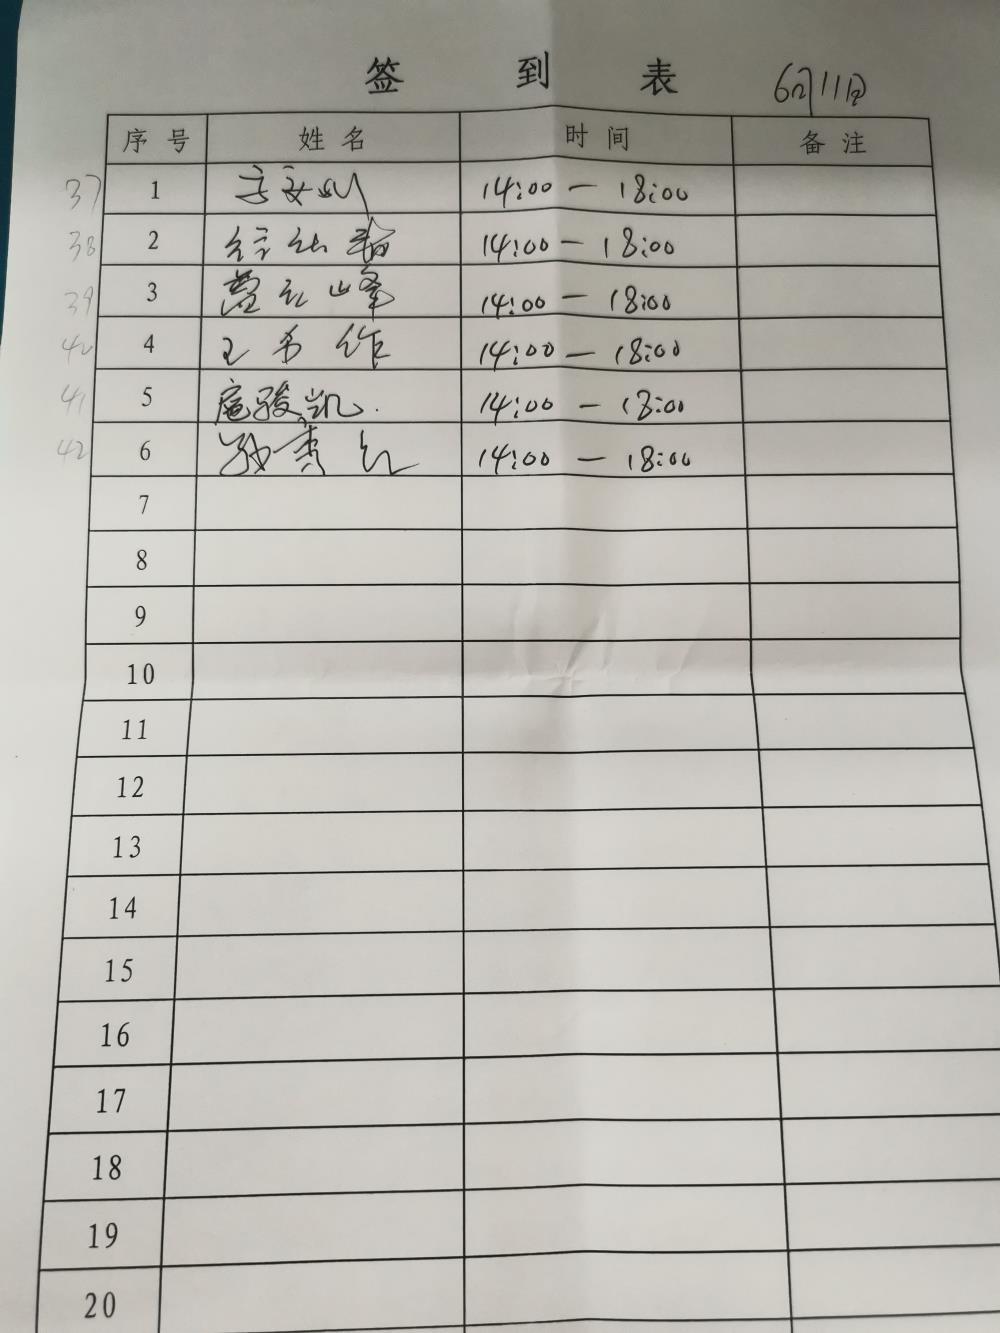 签 到 表 6月11日
序号 姓名 时间 备注
37 1 14:00 — 18:00
38 2 14:00 — 18:00
39 3 峰 14:00 — 18:00
40 4 14:00 — 18:00
41 5 庞骏凯 14:00 — 18:00
42 6 14:00 — 18:00
7
8
9
10
11
12
13
14
15
16
17
18
19
20